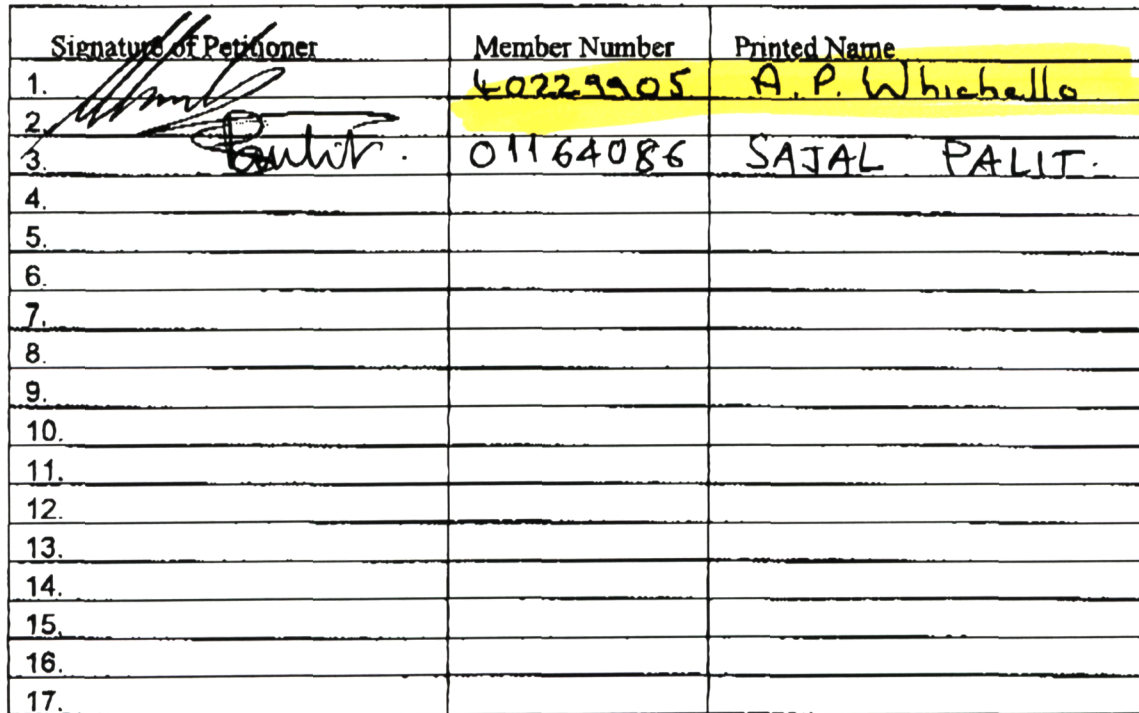 Signature of Petitioner Member Number Printed Name
1. 40229905 A.P. Whichello
2.
3. Palit. 01164086 SAJAL PALIT.
4.
5.
6.
7.
8.
9.
10.
11.
12.
13.
14.
15.
16.
17.